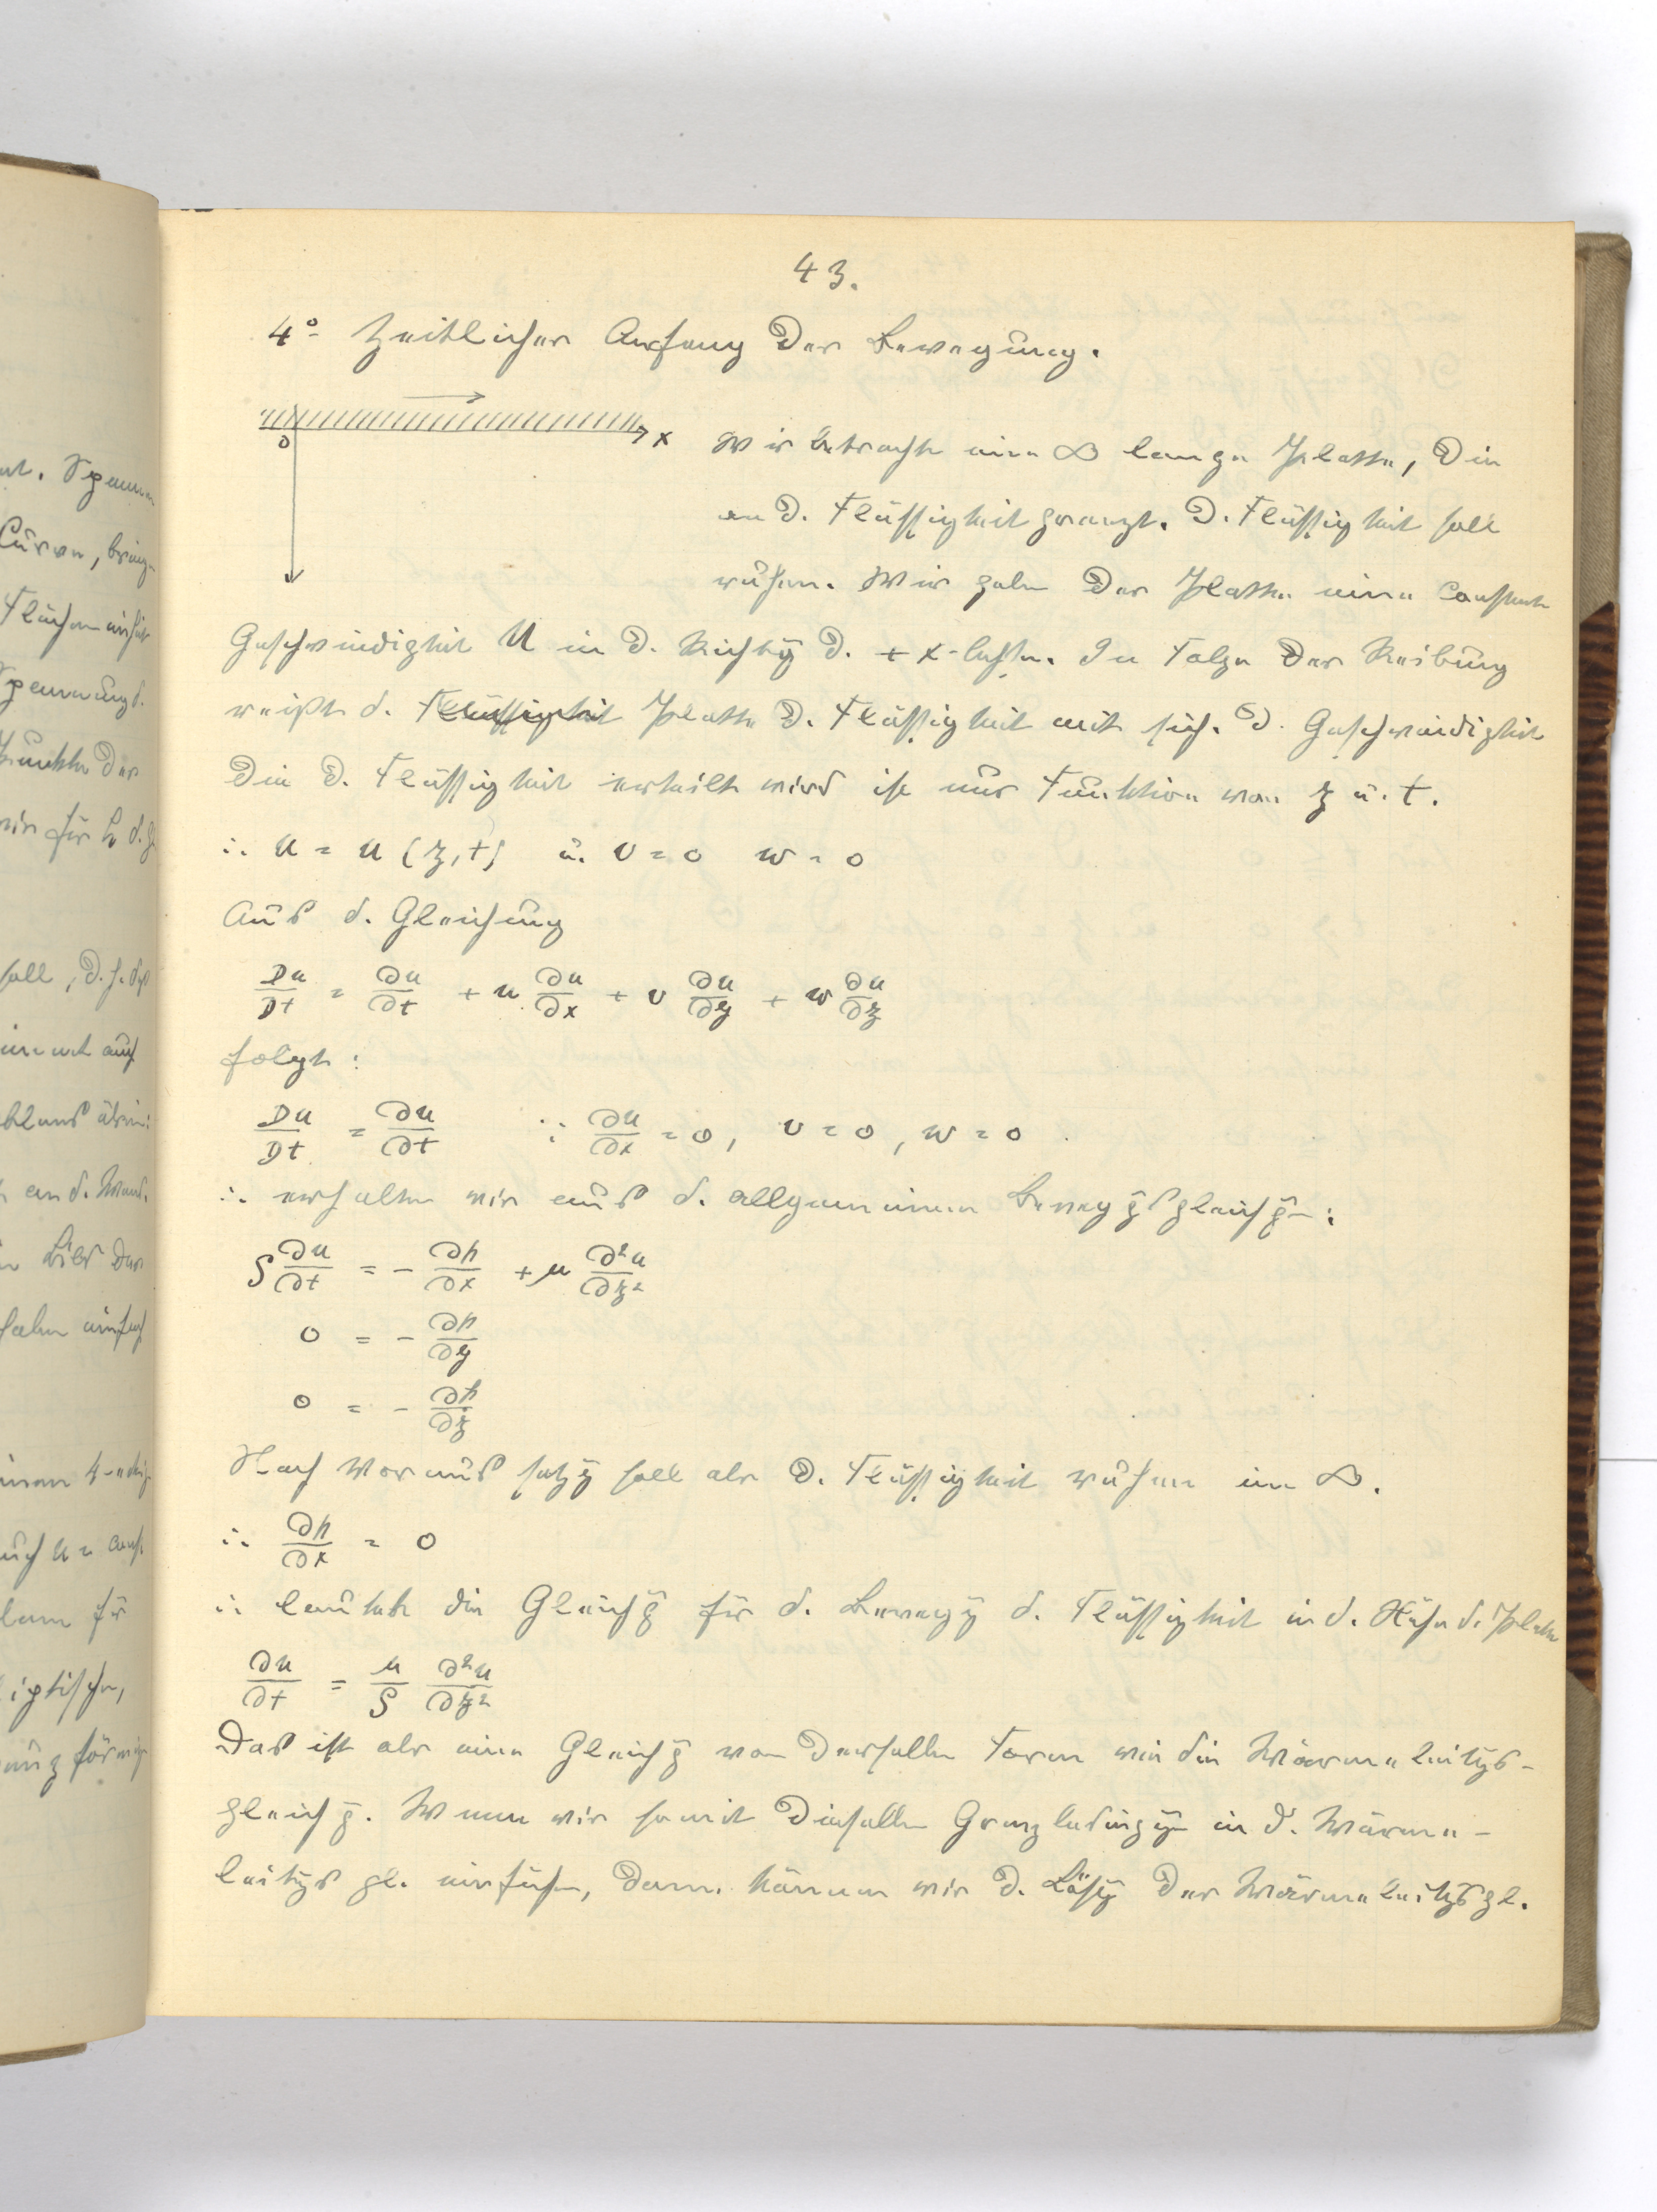 43.
4º Zeitlicher Anfang der Bewegung.
0 x
Wir betracht. eine ∞ lange Platte, die
an d. Flüssigkeit grenzt. D. Flüssigkeit soll
ruhen. Wir geben der Platte eine constante
Geschwindigkeit U in d. Richtg d. + x-Achse. In Folge der Reibung
reißt d. Flüssigkeit Platte d. Flüssigkeit mit sich. D. Geschwindigkeit
die d. Flüssigkeit erteilt wird ist nur Funktion von z u. t.
∴ u = u (z,t) u. v = 0 w = 0
Aus d. Gleichung
Du/Dt = ∂u/∂t + u ∂u/∂x + v ∂u/∂y + w ∂u/∂z
folgt:
Du/Dt = ∂u/∂t ∵ ∂u/∂x = 0, v = 0, w = 0
∴ erhalten wir aus d. allgemeinen Bewegg̅sgleichg̅:
ρ ∂u/∂t = - ∂p/∂x + μ ∂²u/∂z²
0 = - ∂p/∂y
0 = - ∂p/∂z
Nach Voraussetzg̅ soll aber d. Flüssigkeit ruhen im ∞.
∴ ∂p/∂x = 0
∴ lautet die Gleichg̅ für d. Bewegg̅ d. Flüssigkeit in d. Nähe d. Platte
∂u/∂t = μ/ρ ∂²u/∂z²
Das ist aber eine Gleichg̅ von derselben Form wie die Wärmeleitg̅s-
gleichg̅. Wenn wir somit dieselben Grenzbedingg̅ in d. Wärme-
leitg̅s gl. einführen, dann können wir d. Lösg̅ der Wärmeleitg̅sgl.